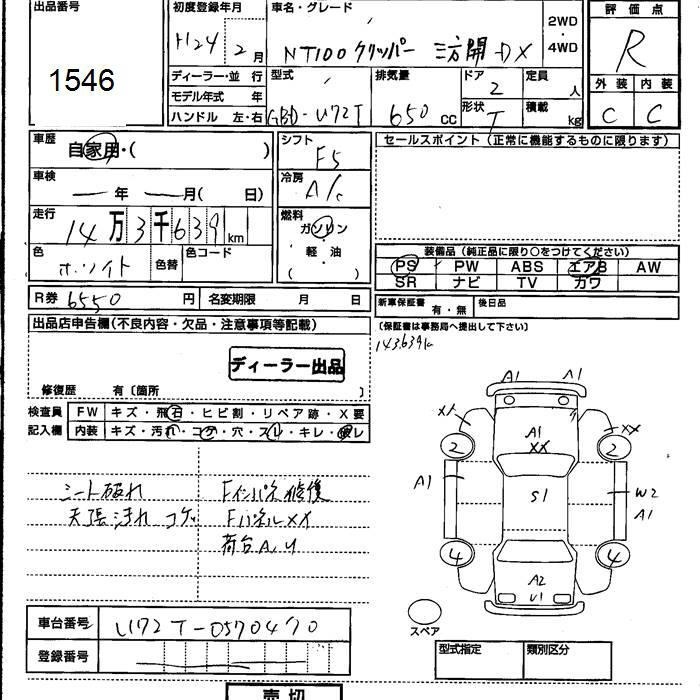 出品番号
1546
初度登録年月
H24 2月
車名・グレード
NT100クリッパー 三方開 DX
2WD
・
4WD
評価点
R
外装 内装
C C
ディーラー・並行
モデル年式 年
ハンドル 左・右
型式
GBD-U72T
排気量
650 cc
ドア
2
形状
T
定員
人
積載
kg
車歴
自家用・( )
車検
年 月( 日)
走行
14万3千639km
色
ホワイト
色替
色コード
R券 6550 円
名変期限 月 日
シフト
F5
冷房
A/C
燃料
ガソリン
・
軽・油
( )
セールスポイント(正常に機能するものに限ります)
装備品(純正品に限り○をつけてください)
PS PW ABS エアB AW
SR ナビ TV カワ
新車保証書
有・無
後日品
(保証書は事務局へ提出して下さい)
143,639k
出品店申告欄(不良内容・欠品・注意事項等記載)
ディーラー出品
修復歴 有〔箇所 〕
検査員
記入欄
FW キズ・飛石・ヒビ割・リペア跡・X要
内装 キズ・汚れ・コゲ・穴・スレ・キレ・破レ
シート破れ
天張汚れ コゲ
Fインパネ修復
Fパネル XX
荷台A,U
A1 A1
XX XX
2 A1 2
XX
A1 S1 W2
A1
4 4
A2
U1
スペア
車台番号 U72T-0570470
登録番号
型式指定 類別区分
売切